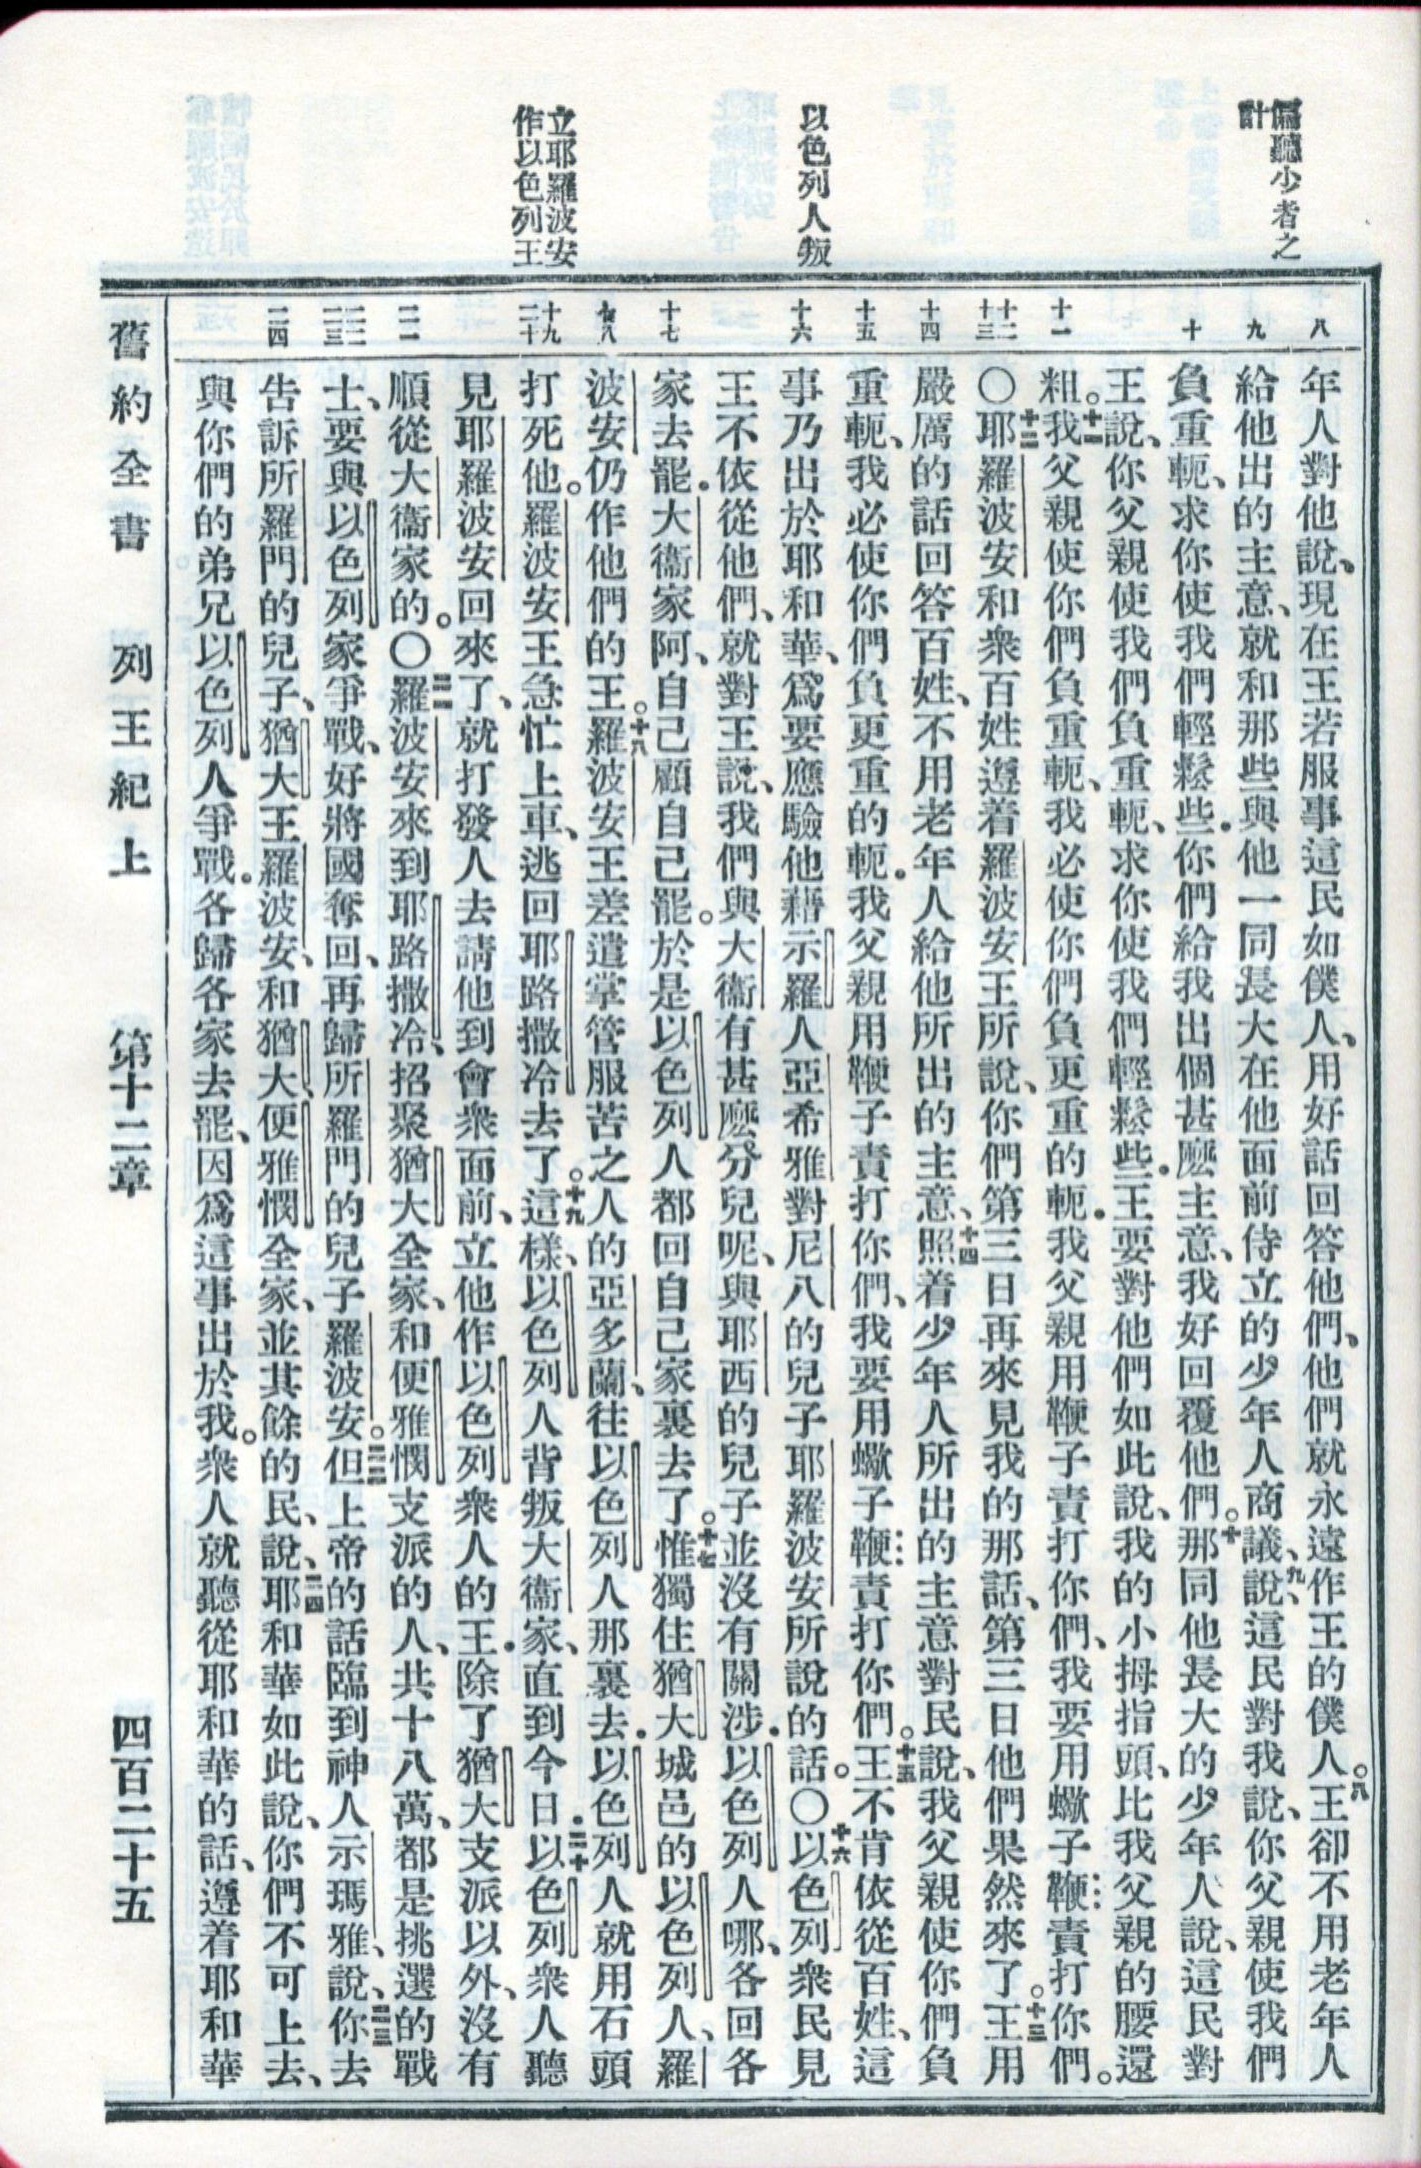 偏聽少者之
計
以色列人叛
立耶羅波安
作以色列王
八
九
十
十一
十二
十三
十四
十五
十六
十七
十八
十九
二十
二一
二二
二三
二四
年人對他說、現在王若服事這民如僕人、用好話回答他們、他們就永遠作王的僕人。八王卻不用老年人
給他出的主意、就和那些與他一同長大在他面前侍立的少年人商議、九說、這民對我說、你父親使我們
負重軛、求你使我們輕鬆些．你們給我出個甚麼主意、我好回覆他們。十那同他長大的少年人說、這民對
王說、你父親使我們負重軛、求你使我們輕鬆些．王要對他們如此說、我的小拇指頭、比我父親的腰還
粗。十一我父親使你們負重軛、我必使你們負更重的軛．我父親用鞭子責打你們、我要用蠍子鞭責打你們。
〇十二耶羅波安和衆百姓遵着羅波安王所說、你們第三日再來見我的那話、第三日他們果然來了。十三王用
嚴厲的話回答百姓、不用老年人給他所出的主意、十四照着少年人所出的主意對民說、我父親使你們負
重軛、我必使你們負更重的軛．我父親用鞭子責打你們、我要用蠍子鞭責打你們。十五王不肯依從百姓、這
事乃出於耶和華、爲要應驗他藉示羅人亞希雅對尼八的兒子耶羅波安所說的話。〇十六以色列衆民見
王不依從他們、就對王說、我們與大衞有甚麼分兒呢、與耶西的兒子並沒有關涉．以色列人哪、各回各
家去罷．大衞家阿、自己顧自己罷。於是以色列人都回自己家裏去了。十七惟獨住猶大城邑的以色列人、羅
波安仍作他們的王。十八羅波安王差遣掌管服苦之人的亞多蘭、往以色列人那裏去．以色列人就用石頭
打死他。羅波安王急忙上車、逃回耶路撒冷去了。十九這樣、以色列人背叛大衞家、直到今日．二十以色列衆人聽
見耶羅波安回來了、就打發人去請他到會衆面前、立他作以色列衆人的王．除了猶大支派以外、沒有
順從大衞家的。〇二一羅波安來到耶路撒冷、招聚猶大全家、和便雅憫支派的人、共十八萬、都是挑選的戰
士、要與以色列家爭戰、好將國奪回、再歸所羅門的兒子羅波安。二二但上帝的話臨到神人示瑪雅、說、二三你去
告訴所羅門的兒子、猶大王羅波安、和猶大、便雅憫全家、並其餘的民、說、二四耶和華如此說、你們不可上去、
與你們的弟兄以色列人爭戰。各歸各家去罷、因爲這事出於我。衆人就聽從耶和華的話、遵着耶和華
舊約全書　列王紀上　第十二章　四百二十五